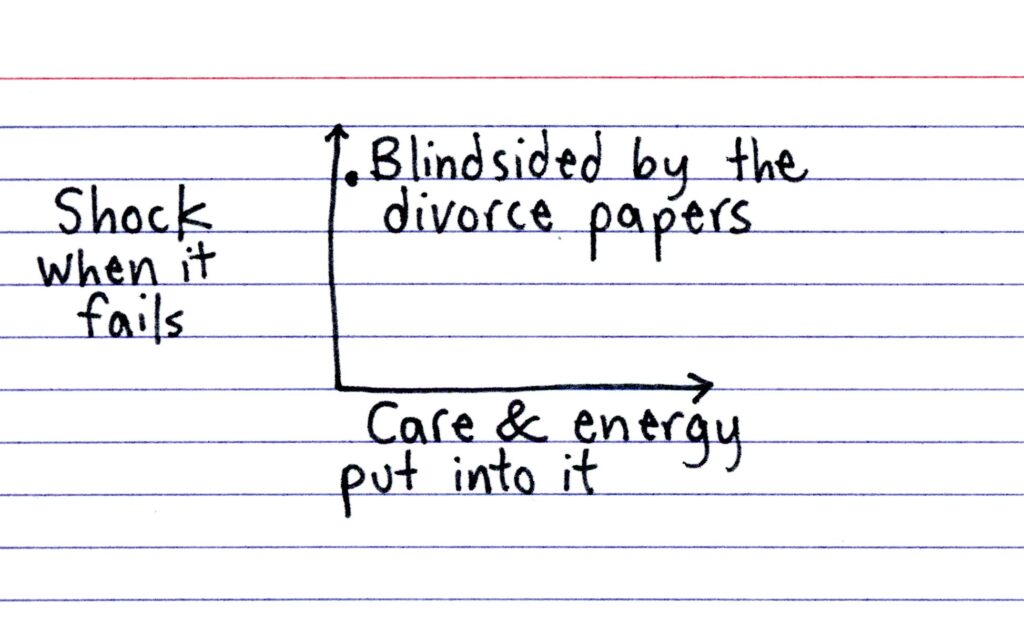 Blindsided by the
divorce papers
Shock
when it
fails
Care & energy
put into it